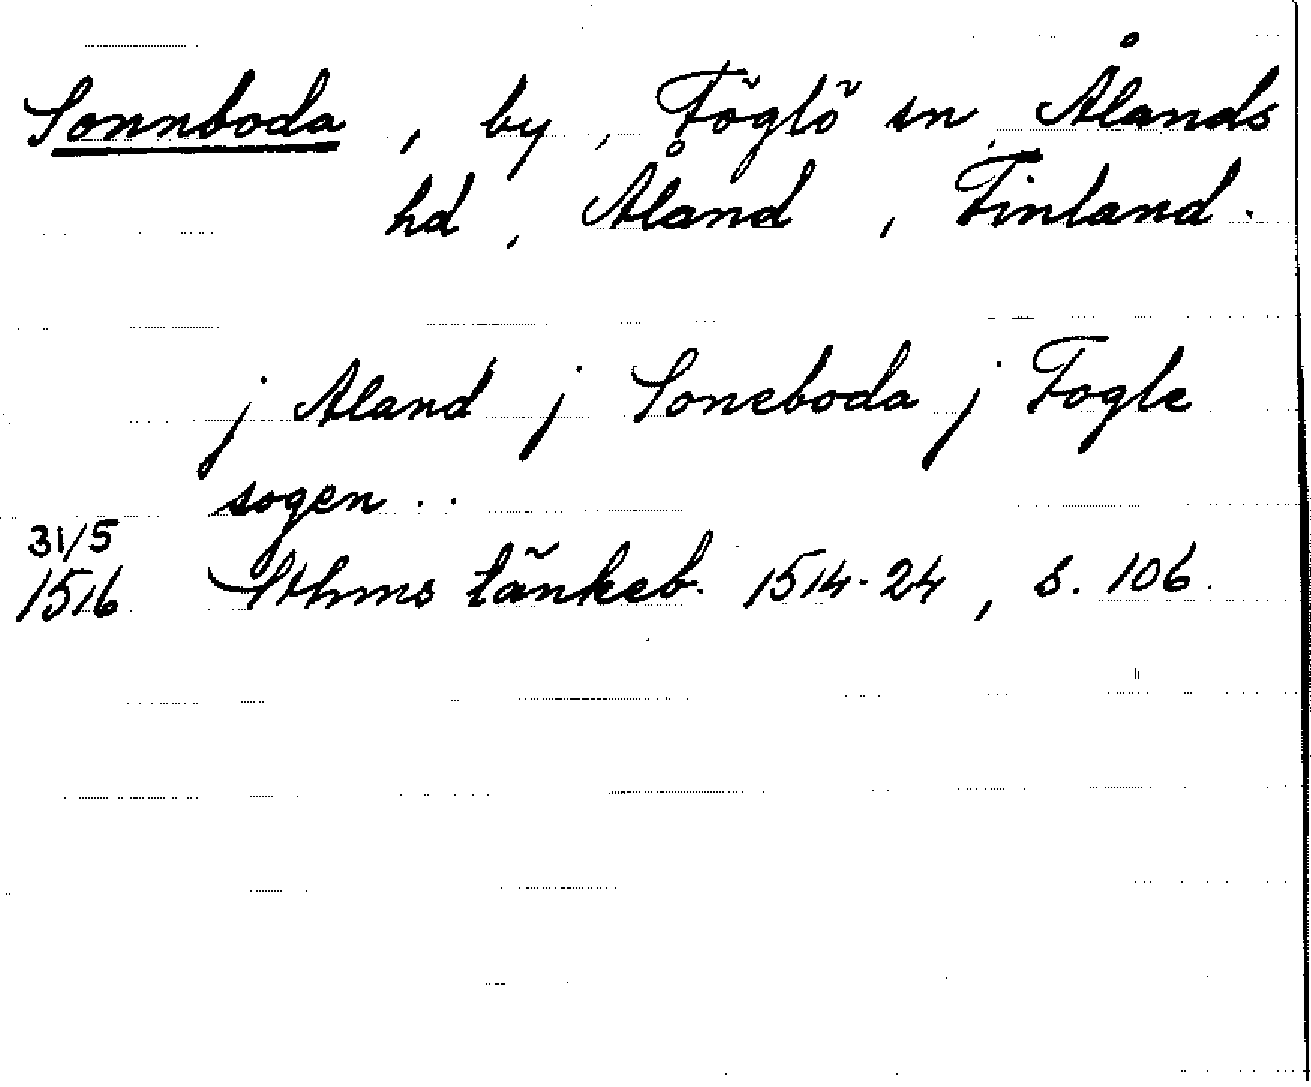 Sonnboda, by, Föglö sn, Ålands
hd, Åland, Finland.
j Aland j Soneboda j Fogle
sogen..
31/5
1516 Sthms tänkeb. 1514-24, s. 106.